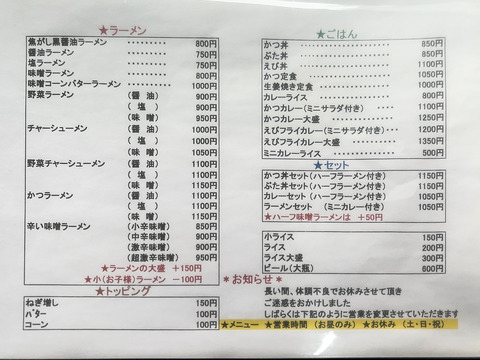 ★ラーメン
焦がし黒醤油ラーメン ········· 800円
醤油ラーメン ········· 750円
塩ラーメン ········· 750円
味噌ラーメン ········· 800円
味噌コーンバターラーメン ········· 1000円
野菜ラーメン (醤 油) 900円
(塩) 900円
(味 噌) 950円
チャーシューメン (醤 油) 1000円
(塩) 1000円
(味 噌) 1050円
野菜チャーシューメン (醤 油) 1100円
(塩) 1100円
(味 噌) 1150円
かつラーメン (醤 油) 1100円
(塩) 1100円
(味 噌) 1150円
辛い味噌ラーメン (小辛味噌) 850円
(中辛味噌) 900円
(激辛味噌) 900円
(超激辛味噌) 950円
★ラーメンの大盛 +150円
★小(お子様)ラーメン -100円
★トッピング
ねぎ増し 150円
バター 100円
コーン 100円
★ごはん
かつ丼 850円
ぶた丼 850円
えび丼 1100円
かつ定食 1050円
生姜焼き定食 1000円
カレーライス 800円
かつカレー(ミニサラダ付き) 1100円
かつカレー大盛 1250円
えびフライカレー(ミニサラダ付き) 1200円
えびフライカレー大盛 1350円
ミニカレーライス 500円
★セット
かつ丼セット(ハーフラーメン付き) 1150円
ぶた丼セット(ハーフラーメン付き) 1150円
カレーセット(ハーフラーメン付き) 1050円
ラーメンセット (ミニカレー付き) 1050円
★ハーフ味噌ラーメンは +50円
小ライス 150円
ライス 200円
ライス大盛 300円
ビール(大瓶) 600円
*お知らせ*
長い間、体調不良でお休みさせて頂き
ご迷惑をおかけしました
しばらくは下記のように営業を変更させていただきます
★メニュー ★営業時間 (お昼のみ) ★お休み (土・日・祝)